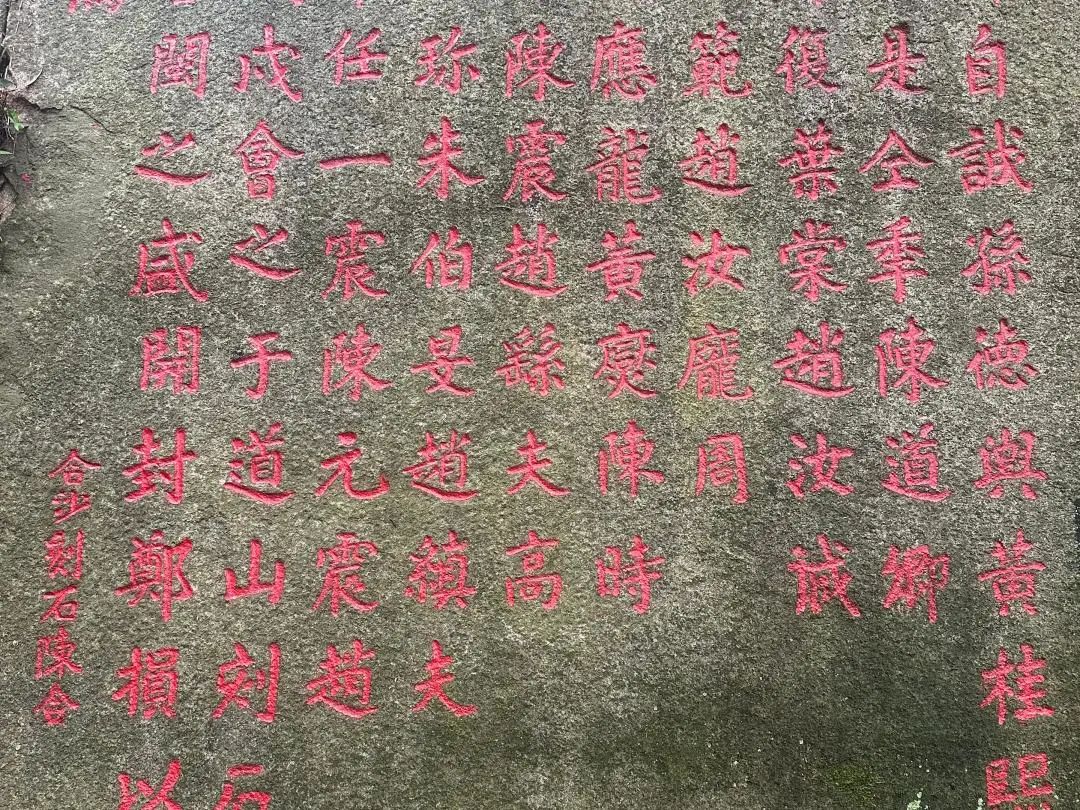 自誠孫德輿黃桂熙
是仝季陳道卿
復葉棠趙汝誠
範趙汝龐周
應龍黃奭陳時
陳震趙繇夫高
珎朱伯旻趙𥛘夫
任一震陳元震趙
戍會之于道山刻石
閩之盛開封鄭損以
合沙刻石陳合